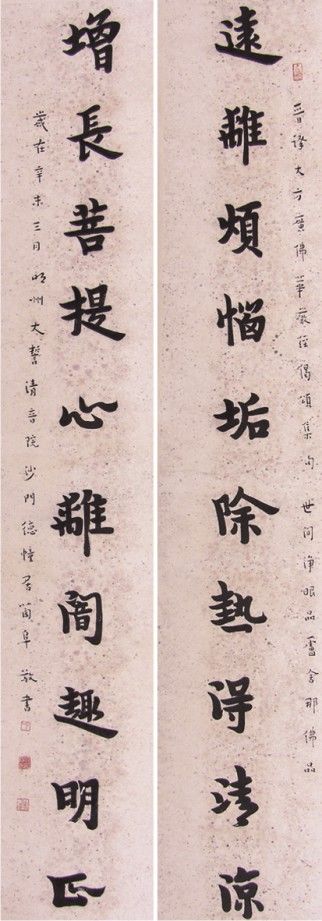 晉譯大方廣佛華嚴經偈頌集句 世間淨眼品盧舍那佛品
遠離煩惱垢除熱得清涼
增長菩提心離闇趣明正
歲在辛未三月明州大誓清音院沙門德幢居蘭阜敬書